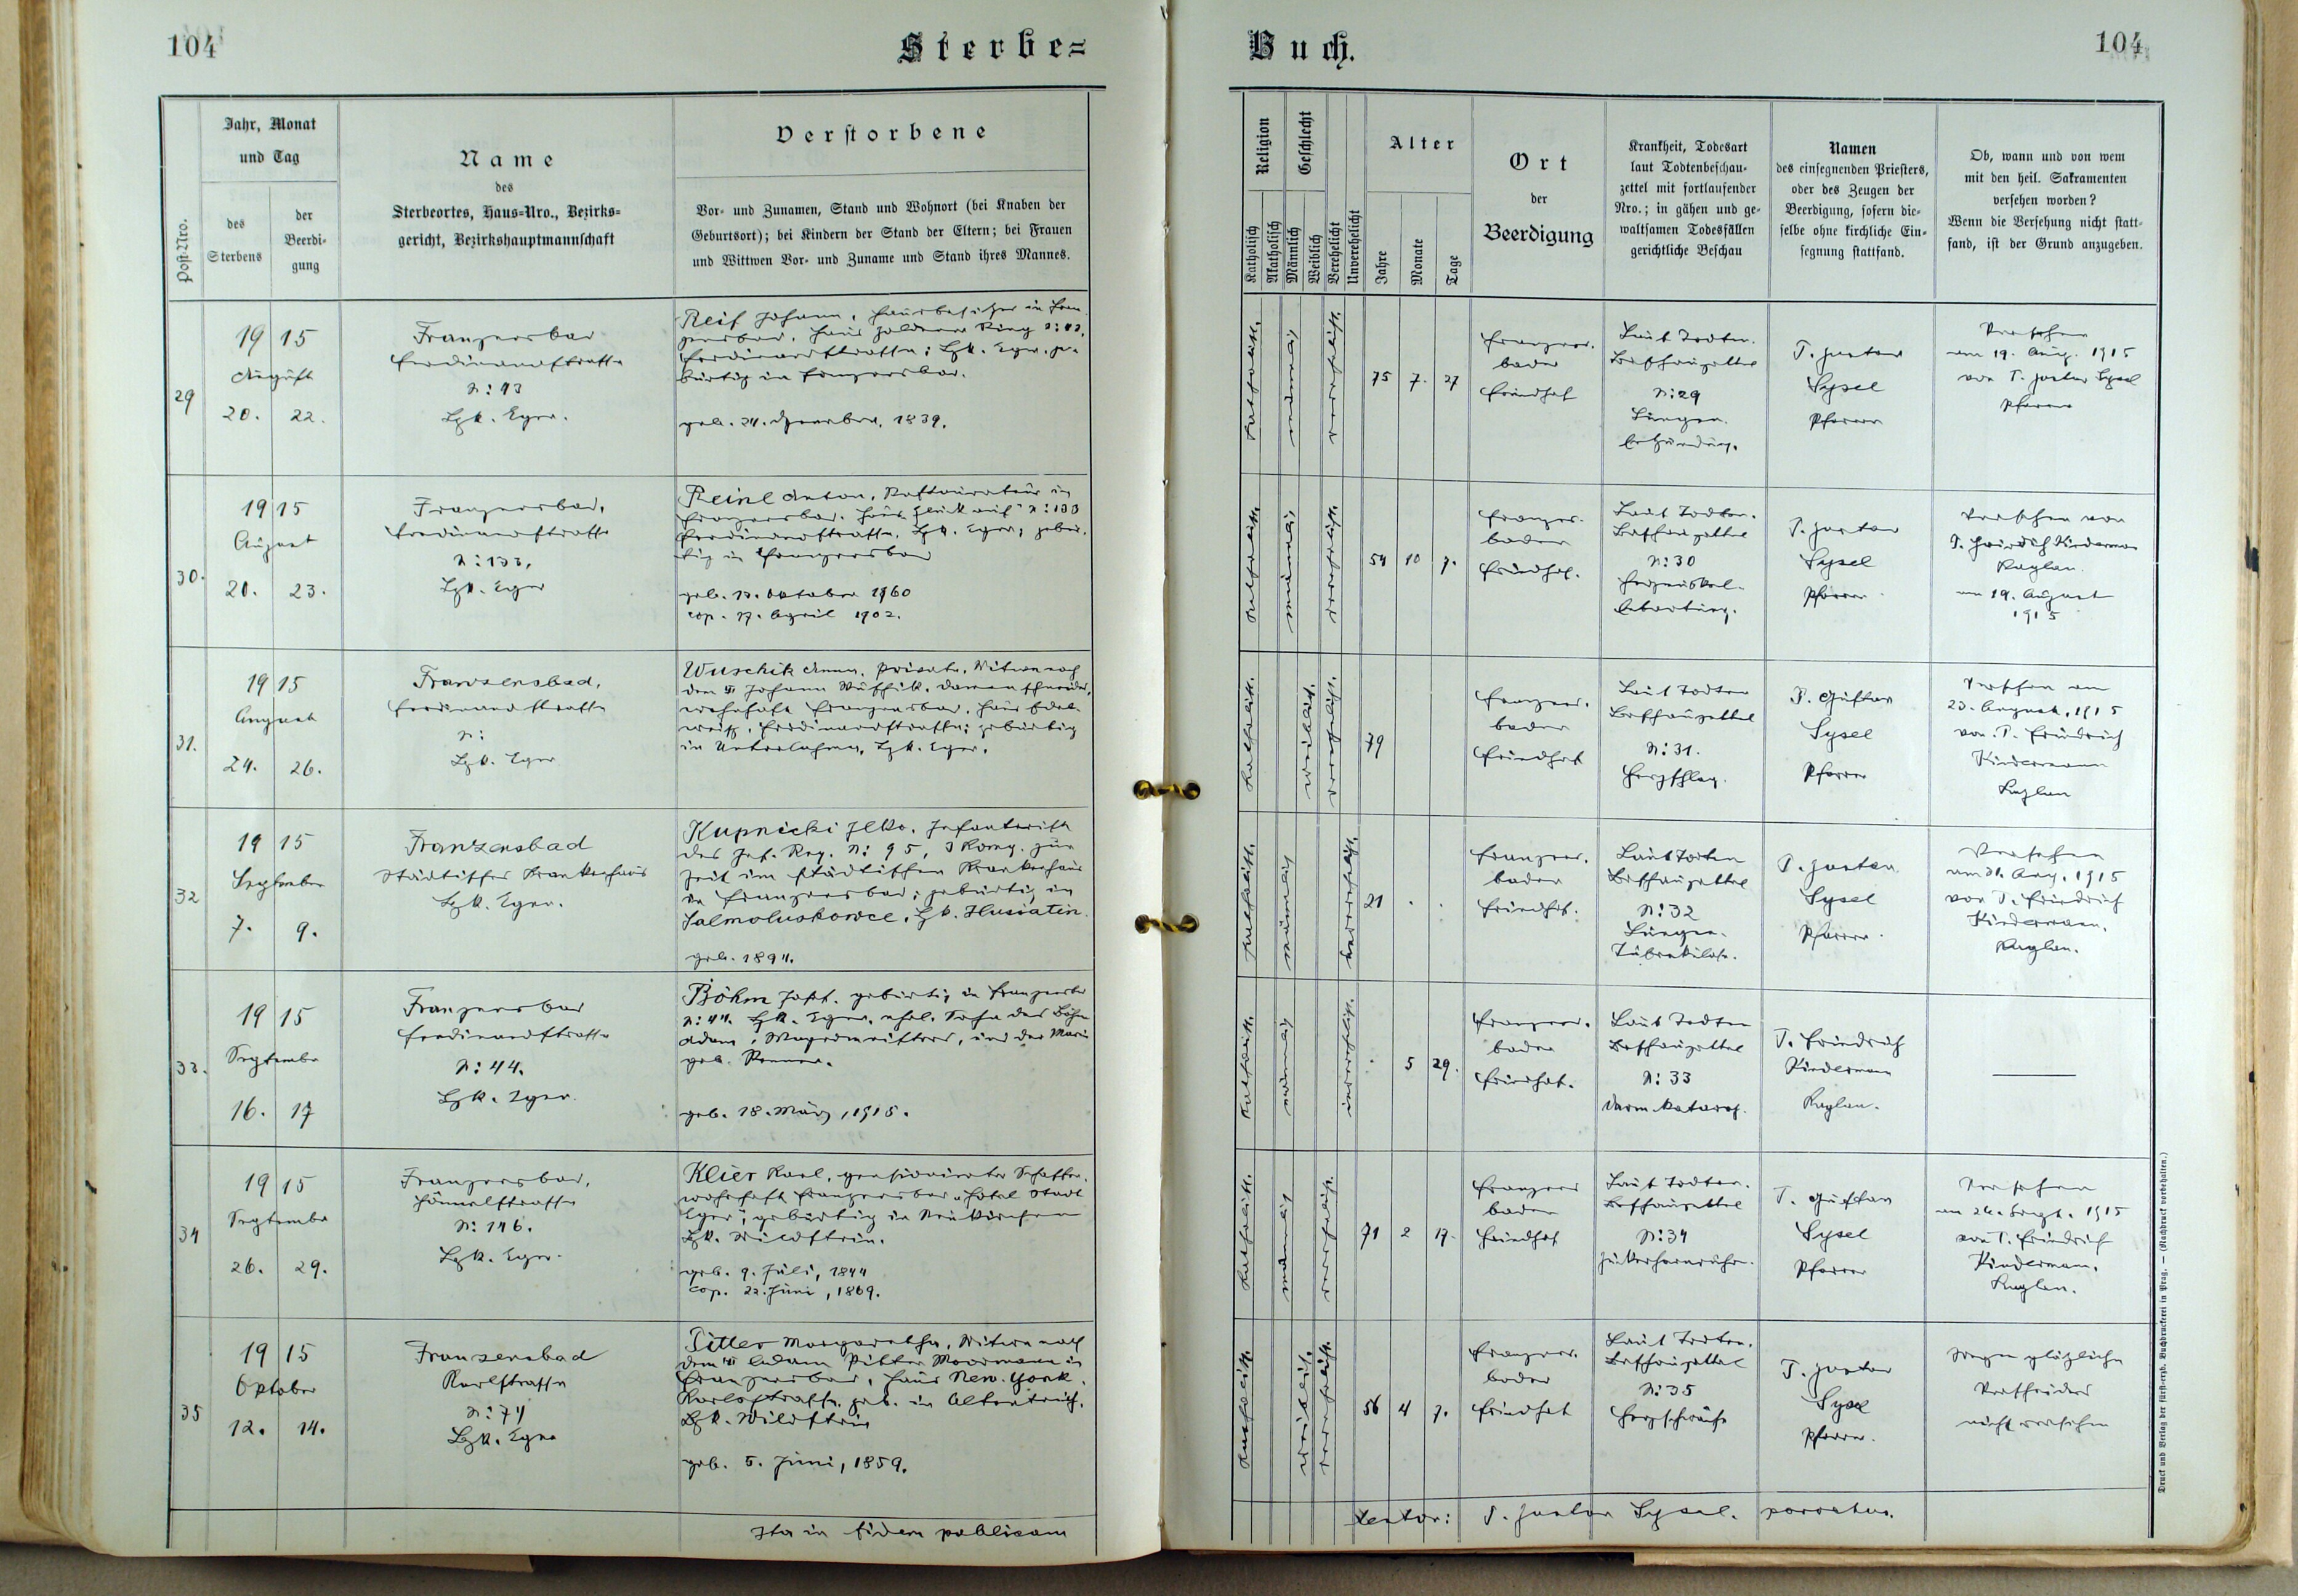 104
Sterbe=
Buch.
104
Post-Nro.
Jahr, Monat
und Tag
des
Sterbens
der
Beerdi-
gung
Name
des
Sterbeortes, Haus-Nro., Bezirks-
gericht, Bezirkshauptmannschaft
Verstorbene
Vor- und Zunamen, Stand und Wohnort (bei Knaben der
Geburtsort); bei Kindern der Stand der Eltern; bei Frauen
und Wittwen Vor- und Zuname und Stand ihres Mannes.
Religion
Katholisch
Akatholisch
Geschlecht
Männlich
Weiblich
Verehelicht
Unverehelicht
Alter
Jahre
Monate
Tage
Ort
der
Beerdigung
Krankheit, Todesart
laut Todtenbeschau-
zettel mit fortlaufender
Nro.; in gähen und ge-
waltsamen Todesfällen
gerichtliche Beschau
Namen
des einsegnenden Priesters,
oder des Zeugen der
Beerdigung, sofern die-
selbe ohne kirchliche Ein-
segnung stattfand.
Ob, wann und von wem
mit den heil. Sakramenten
versehen worden?
Wenn die Versehung nicht statt-
fand, ist der Grund anzugeben.
29
19 15
August
20. 22.
Franzensbad
Ferdinandstrasse
N: 43
Bzk. Eger.
Reif Johann, Hausbesitzer in Fran
zensbad, Haus goldener Ring N: 43,
Ferdinandstrasse; Bzk. Eger, ge-
bürtig in Franzensbad.
geb. 24. Dezember, 1839.
katholisch.
männlich
verehelicht.
75 7. 27
Franzens-
bader
Friedhof
Laut Todten-
beschauzettel
N: 29
Lungen-
entzündung.
P. Gustav
Sysel
Pfarrer
Versehen
am 19. Aug. 1915
von P. Gustav Sysel
Pfarrer
30.
19 15
August
20. 23.
Franzensbad,
Ferdinandstrasse
N: 133.
Bzk. Eger
Reinl Anton, Restaurateur in
Franzensbad, Haus Glück auf N: 133
Ferdinandstrasse, Bzk. Eger, gebür-
tig in Franzensbad
geb. 13. Oktober 1860
cop. 17. April 1902.
katholisch.
männlich
verehelicht.
54 10 7.
Franzens-
bader
Friedhof.
Laut Todten-
beschauzettel
N: 30
Herzmuskel-
entartung.
P. Gustav
Sysel
Pfarrer
Versehen von
P. Friedrich Kindermann
Kaplan.
am 19. August
1915
31.
19 15
August
24. 26.
Franzensbad,
Ferdinandstrasse
N:
Bzk. Eger
Wuschik Anna, Private, Witwe nach
dem † Johann Wuschik, Damenschneider,
wohnhaft Franzensbad, Haus Edel-
weiss, Ferdinandstrasse; gebürtig
in Unterlohma, Bzk. Eger.
katholisch.
weiblich.
verehelicht.
79
Franzens-
bader
Friedhof
Laut Todten
beschauzettel
N: 31.
Herzschlag.
P. Gustav
Sysel
Pfarrer
Versehen am
23. August, 1915
von P. Friedrich
Kindermann
Kaplan
32
19 15
September
7. 9.
Franzensbad
Städtisches Krankenhaus
Bzk. Eger.
Kupnicki Ilko, Infanterist
des Inf. Reg. N: 95, 3 Komp. zur
Zeit im städtischen Krankenhaus
in Franzensbad; gebürtig in
Salmoluskowce, Bzk. Husiatin.
geb. 1894.
katholisch.
männlich
unverehelicht.
21 . .
Franzens-
bader
Friedhof.
Laut Todten
beschauzettel
N: 32
Lungen-
Tuberkulose.
P. Gustav
Sysel
Pfarrer.
Versehen
am 31. Aug. 1915
von P. Friedrich
Kindermann,
Kaplan.
33.
19 15
September
16. 17
Franzensbad
Ferdinandstrasse
N: 44.
Bzk. Eger.
Böhm Josef, gebürtig in Franzensbad
N: 44. Bzk. Eger, ehel. Sohn des Böhm
Adam, Wagenmeisters, und der Maria
geb. Renner.
geb. 18. März, 1915.
katholisch.
männlich
unverehelicht.
. 5 29.
Franzens-
bader
Friedhof.
Laut Todten
beschauzettel
N: 33
Darmkatarrh.
P. Friedrich
Kindermann
Kaplan.
34
19 15
September
26. 29.
Franzensbad,
N: 146.
Bzk. Eger.
Klier Karl, pensionierter Schaffner,
wohnhaft Franzensbad "Hotel Stadt
Eger"; gebürtig in Neukirchen
Bzk. Wildstein.
geb. 9. Juli, 1844
cop. 22. Juni, 1869.
katholisch.
männlich
verehelicht.
71 2 17.
Franzens
bader
Friedhof
Laut Todten-
beschauzettel
N: 34
Zuckerharnruhr.
P. Gustav
Sysel
Pfarrer
Versehen
am 26. Sept. 1915
von P. Friedrich
Kindermann,
Kaplan.
35
19 15
Oktober
12. 14.
Franzensbad
Karlstrasse
N: 74
Bzk. Eger
Pitter Margaretha, Witwe nach
dem † Adam Pitter Moormann in
Franzensbad, Haus New-York,
Karlsstrasse, geb. in Altenteich,
Bzk. Wildstein
geb. 5. Juni, 1859.
katholisch.
weiblich.
verehelicht.
56 4 7.
Franzens-
bader
Friedhof
Laut Todten-
beschauzettel
N: 35
Herzschwäche
P. Gustav
Sysel
Pfarrer.
Wegen plötzlichen
Verscheidens
nicht versehen
Ita in fidem publicam
testor: P. Gustav Sysel. parochus.
Druck und Verlag der fürst-erzb. Buchdruckerei in Prag. — (Nachdruck vorbehalten.)